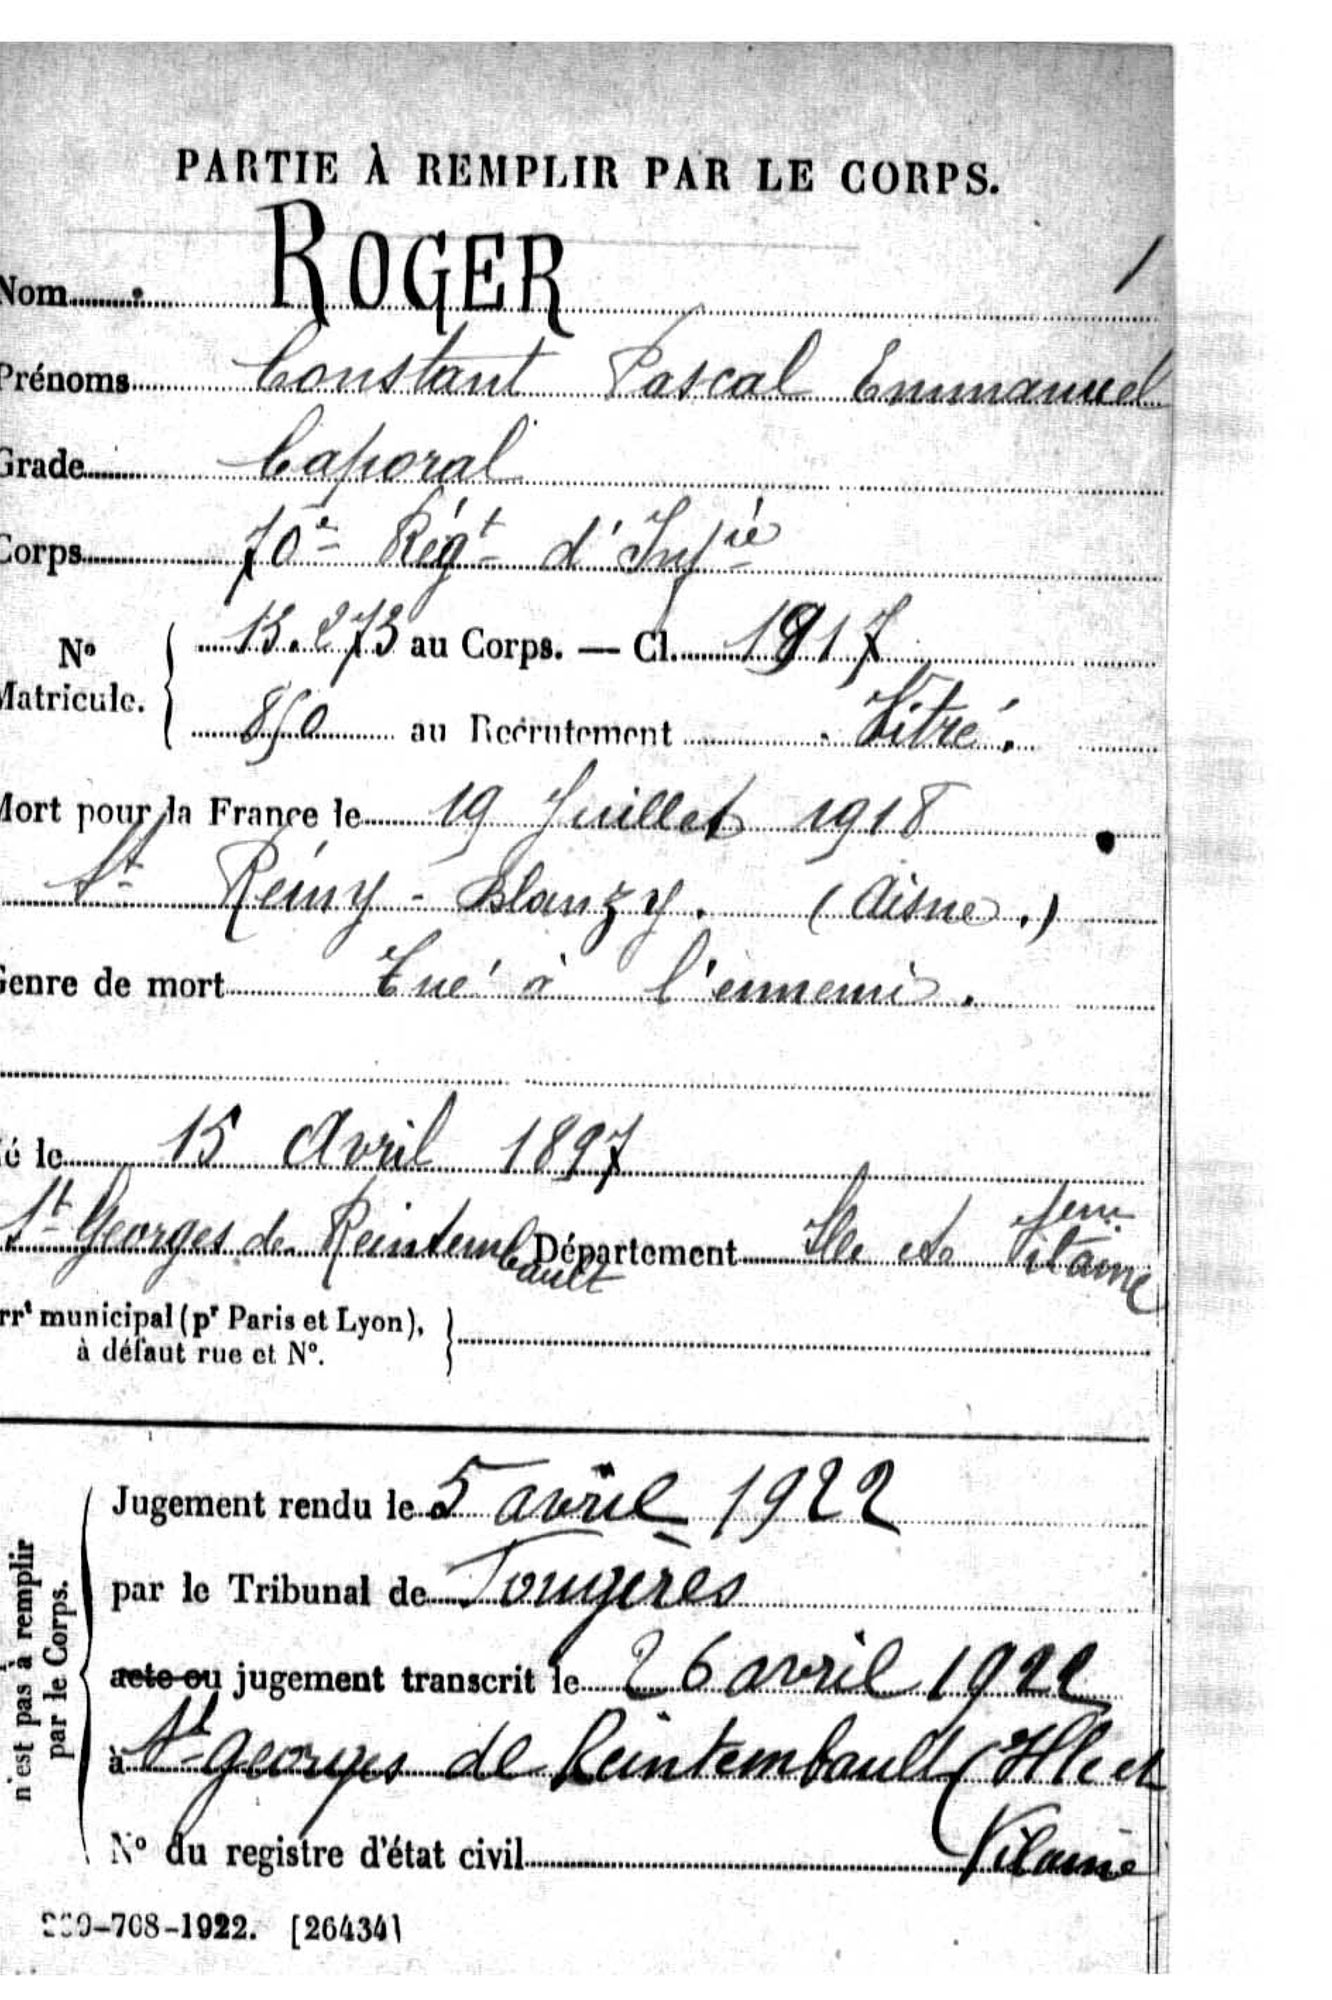 PARTIE À REMPLIR PAR LE CORPS.
1
Nom ROGER
Prénoms Constant Pascal Emmanuel
Grade Caporal
Corps 70e Régt d'Infie
No Matricule. { 13.273 au Corps. — Cl. 1917
850 au Recrutement Vitré.
Mort pour la France le 19 Juillet 1918
St Rémy - Blanzy. (Aisne.)
Genre de mort Tué à l'ennemi.
né le 15 Avril 1897
St Georges de Reintembault Département Ille et Vilaine
rrt municipal (pr Paris et Lyon),
à défaut rue et No.
n'est pas à remplir
par le Corps.
Jugement rendu le 5 avril 1922
par le Tribunal de Fougères
acte ou jugement transcrit le 26 avril 1922
à St georges de Reintembault (Ille et
Vilaine
No du registre d'état civil
-708-1922. [26434]